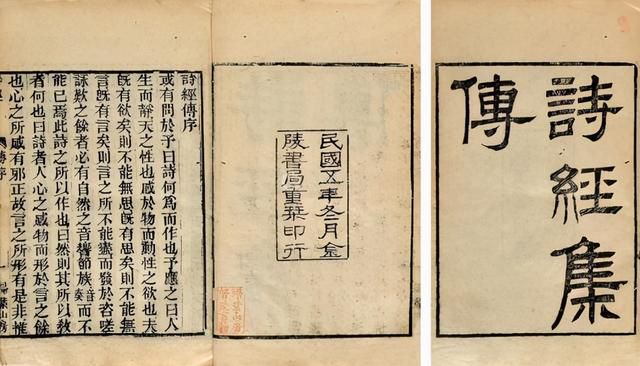 詩經集
傳
民國五年冬月金
陵書局重栞印行
詩經傳序
或有問於予曰詩何爲而作也予應之曰人
生而靜天之性也感於物而動性之欲也夫
既有欲矣則不能無思既有思矣則不能無
言既有言矣則言之所不能盡而發於咨嗟
詠歎之餘者必有自然之音響節族音奏而不
能已焉此詩之所以作也曰然則其所以教
者何也曰詩者人心之感物而形於言之餘
也心之所感有邪正故言之所形有是非惟
傳序 一 葉山房